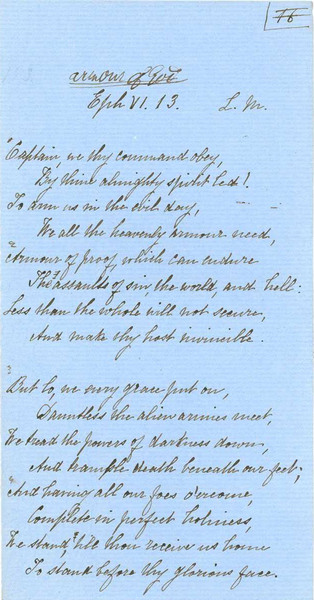 16
armour of God
Eph VI. 13. L. M.
"Captain, we thy command obey,
By thine almighty spirit led!
To arm us in the evil day,
We all the heavenly armour need,
"Armour of proof, which can endure
The assaults of sin, the world, and hell:
Less than the whole will not secure,
And make thy host invincible.
3
But lo, we every grace put on,
Dauntless the alien armies meet,
We tread the powers of darkness down,
And trample death beneath our feet;
"And having all our foes o'ercome,
Complete in perfect holiness,
We stand, till thou receive us home
To stand before thy glorious face.